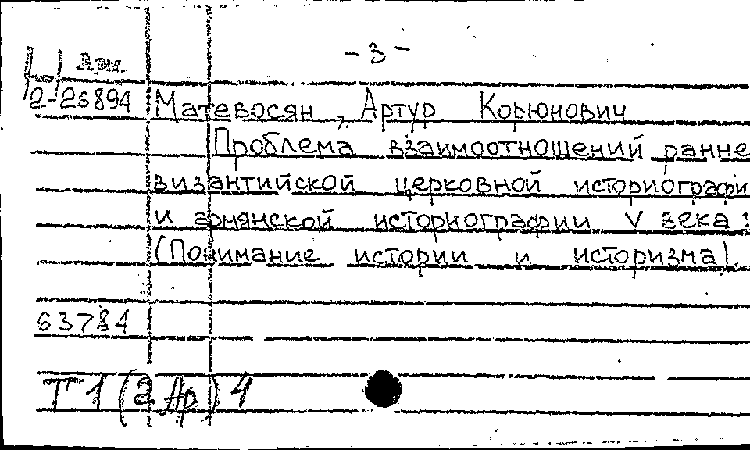 - 3 -
Арм.
2-23894 Матевосян, Артур Корюнович
Проблема взаимоотношений ранне
византийской церковной историографи
и армянской историографии V века:
(Понимание истории и историзма).
63784
Т 1 (2 Ар) 4